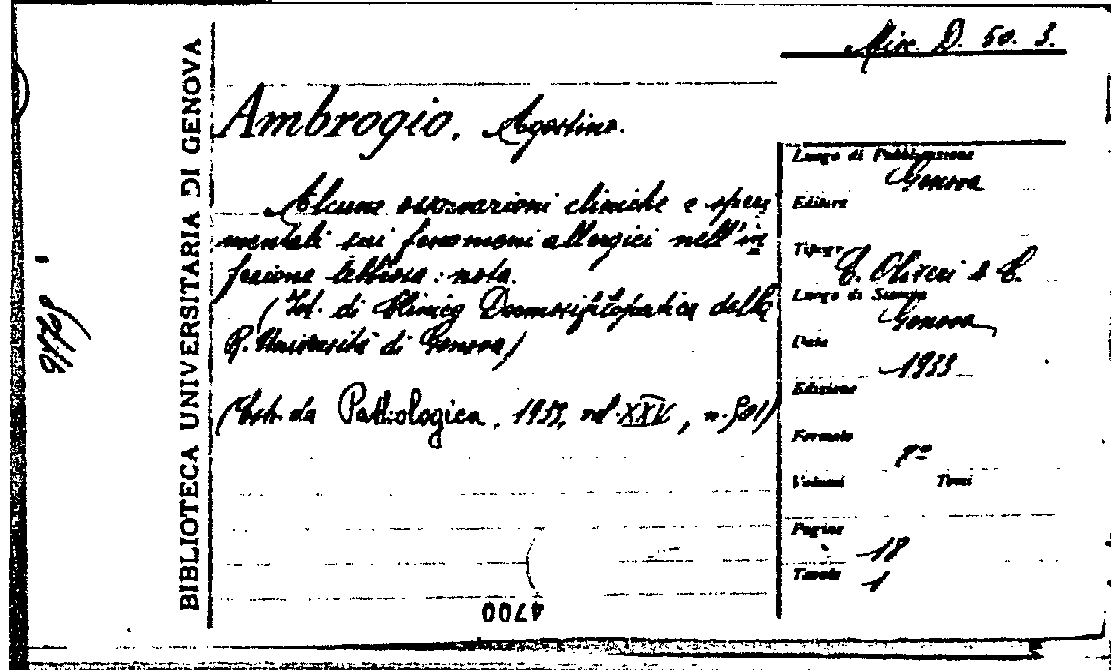 BIBLIOTECA UNIVERSITARIA DI GENOVA
Misc. D. 50. 3.
Ambrogio, Agostino.
Alcune osservazioni cliniche e speri
mentali sui fenomeni allergici nell'in
fezione lebbrosa: nota.
(Ist. di Clinica Dermosifilopatica della
R. Università di Genova)
(Estr. da Pathologica, 1933, vol. XXV, n. 501)
Luogo di Pubblicazione
Genova
Editore
Tipogr.
E. Oliveri & C.
Luogo di Stampa
Genova
Data
1933
Edizione
Formato
8°
Volumi Tomi
Pagine
18
Tavole
1
4700